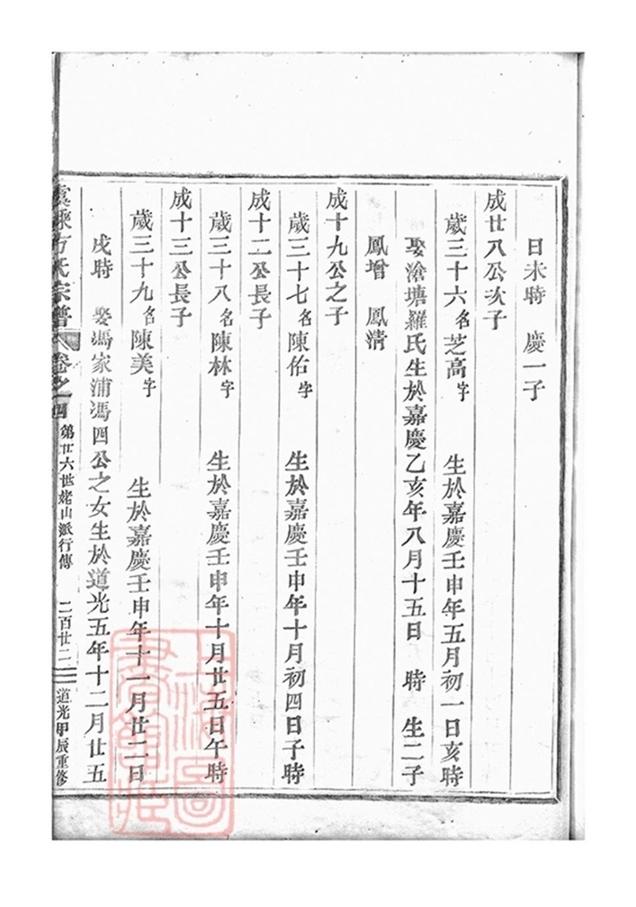 日未時 慶一子
成廿八公次子
歲三十六名芝高字 生於嘉慶壬申年五月初一日亥時
娶滄塘羅氏生於嘉慶乙亥年八月十五日 時 生二子
鳳增 鳳清
成十九公之子
歲三十七名陳佑字 生於嘉慶壬申年十月初四日子時
成十二公長子
歲三十八名陳林字 生於嘉慶壬申年十月廿五日午時
成十三公長子
歲三十九名陳美字 生於嘉慶壬申年十一月廿二日
戌時 娶馮家浦馮四公之女生於道光五年十二月廿五
方氏宗譜 卷之四 第廿六世姥山派行傳 二百廿二 道光甲辰重修